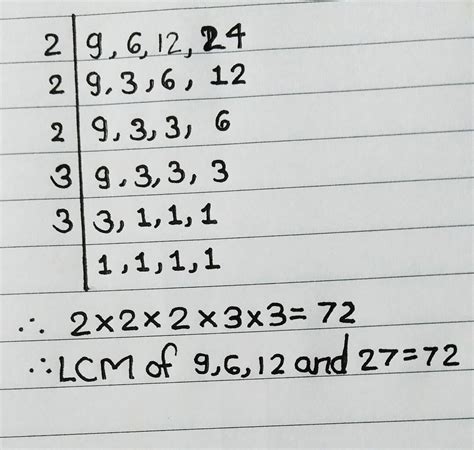 2 | 9, 6, 12, 24
2 | 9, 3, 6, 12
2 | 9, 3, 3, 6
3 | 9, 3, 3, 3
3 | 3, 1, 1, 1
1, 1, 1, 1
∴ 2×2×2×3×3=72
∴ LCM of 9,6,12 and 27=72